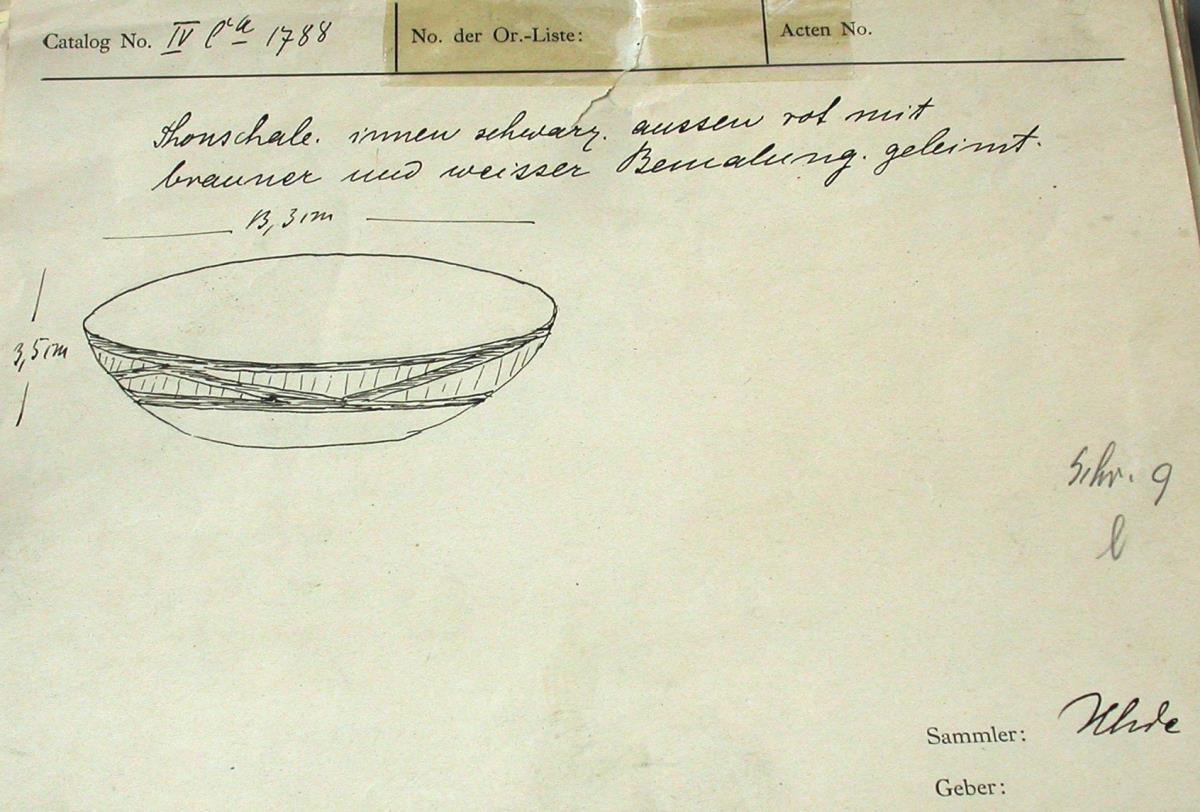 Catalog No. IV Ca 1788 No. der Or.-Liste: Acten No.
Thonschale. innen schwarz. aussen rot mit
brauner und weisser Bemalung. geleimt.
13,3 cm
3,5 cm
Schr. 9
l
Sammler: Uhde
Geber: